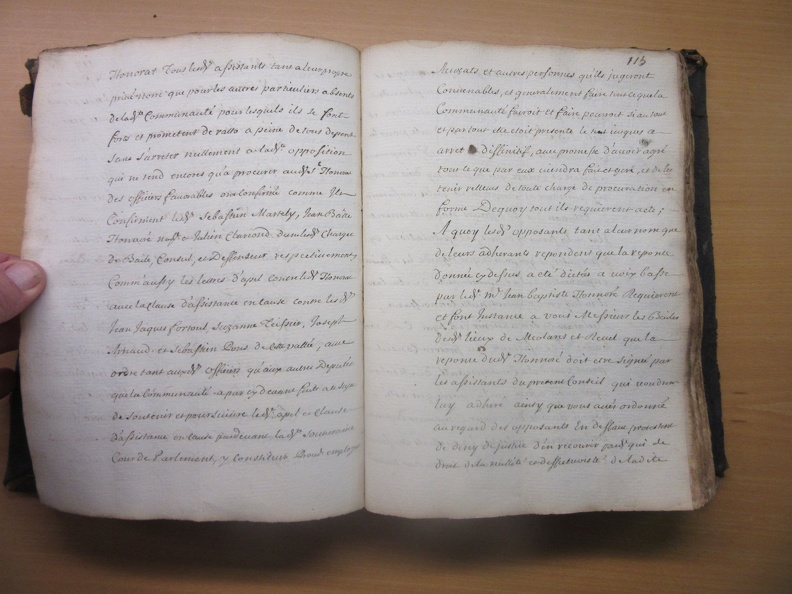 Honorat Tous lesd. assistants tant a leur propre
privé nom que pour les autres particuliers absents
de lad. Communauté pour lesquels ils se font
forts et prometent de ratto a peine de tous depens
sans s'arreter nullement a lad. opposition
qui ne tend entores qu'a procurer aud. Sr. Honorat
des officiers favorables ont confirmé comme Ils
Confirment lesd. Sebastien Martely, Jean Bapte
Honnoré et Julien Clariond dans lesd. Charges
de Baile, Consul, et Deffenseur respectivement
Comm'aussy les lettres d'apel contre led. Honorat
avec la clause d'assistance en cause contre lesd.
Jean Jaques fortoul, Suzanne Teissier, Joseph
Arnaud et Sebastien Pons de cette vallée, avec
ordre tant auxd. officiers qu'aux autres Deputés
que la Communauté a par cy devant fait
de soutenir et poursuivre led. apel et Clause
d'assistance en cause pardevant lad. Souveraine
Cour de Parlement, y constituer Procur. employer
113
Avocats et autres personnes qu'ils jugeront
Convenables, et generalement faire tout ce que la
Communauté fairoit et faire pouvoit si a tout
et par tout elle etoit presente le tout jusques a
arret diffinitif, avec promesse d'avoir agré
tout ce que par eux viendra fait et geré, et de les
tenir relleués de toute charge de procuration en
forme De quoy tout ils requierent acte;
A quoy lesd. opposants tant a leur nom que
de leurs adherants repondent que la reponce
donnée cy dessus a eté dictée a voix basse
par led. Me. Jean baptiste Honnoré Requierent
et font Instance a vous Messieurs les Bailes
desd. lieux de Meolans et Revel que la
reponce dud. Honnoré doit etre signée par
les assistants du present Conseil qui voudront
luy adheré ainsy que vous avés ordonné
au regard des opposants En deffaut protestent
de deny de justice d'en recourir par qui de
droit de la nullité et deffectuosité de ladite